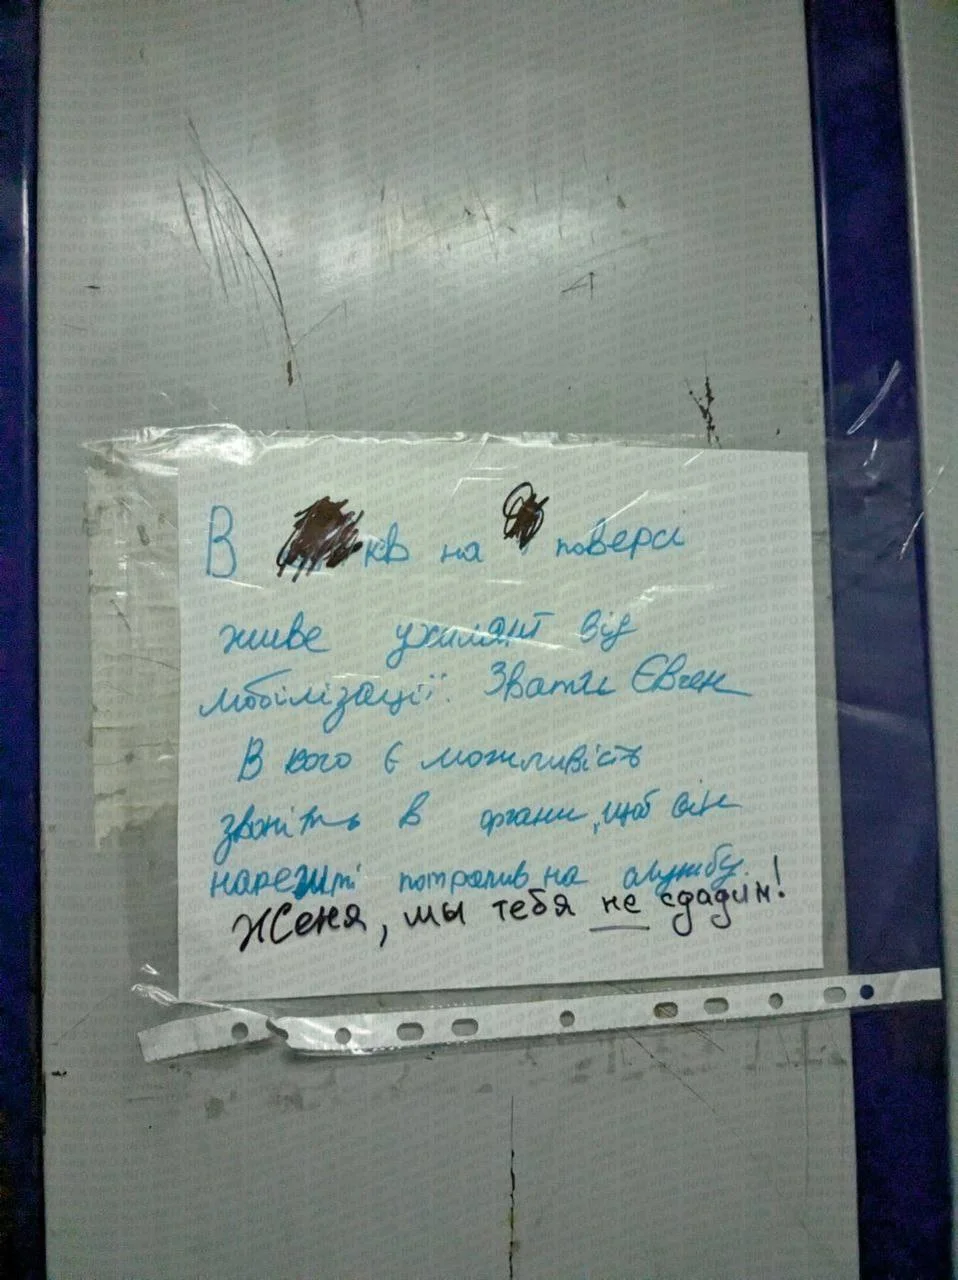 В кв на поверсі
живе ухилянт від
мобілізації. Звати Євген
В кого є можливість
звоніть в органи, щоб він
нарешті потрапив на службу.
Женя, мы тебя не сдадим!
INFO Київ